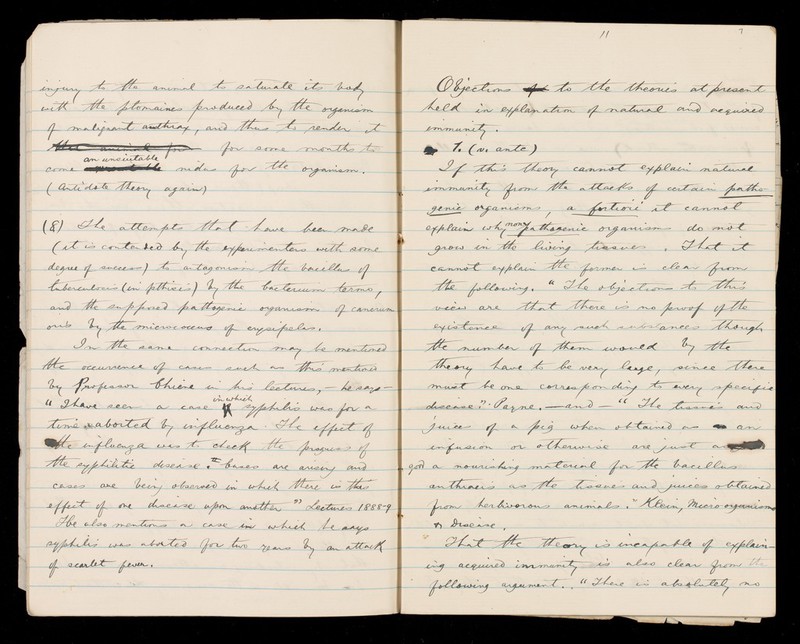 injury to the animal to saturate its body
with the ptomaines produced by the organism
of malignant anthrax, and thus to render it
for some months to
come an unsuitable nidus for the organism.
(Antidote theory again)
(8) The attempts that have been made
(it is contended by the experimenters with some
degree of success) to antagonise the bacillus of
tuberculosis (in pthisis) by the bacterium termo,
and the supposed pathogenic organisms of cancerum
oris by the micrococcus of erysipelas.
In the same connection may be mentioned
the occurrence of cases such as this mentioned
by Professor Chiene in his lectures, - he says -
"I have seen a case in which syphilis was for a
time aborted by influenza. The effect of
the influenza was to check the progress of
the syphilitic disease. Cases are arising and
cases are being observed in which there is this
effect of one disease upon another" Lectures 1888-9
He also mentions a case in which he says
syphilis was aborted for two years by an attack
of scarlet fever.
11 7
Objections to the theories at present
held in explanation of natural and acquired
immunity.
1. (v. ante)
If this theory cannot explain natural
immunity from the attacks of certain patho-
genic organisms, a fortiori it cannot
explain why many pathogenic organisms do not
grow in the living tissues. That it
cannot explain the former is clear from
the following. "The objections to this
view are that there is no proof of the
existence of any such substances though
the number of them would by the
theory have to be very large, since there
must be one corresponding to every specific
disease": Payne. - and - "The tissues and
juices of a pig when obtained as an
infusion or otherwise are just as
good a nourishing material for the bacillus
anthracis as the tissues and juices obtained
from herbivorous animals." Klein, Micro organisms
& Disease.
That the theory is incapable of explain-
ing acquired immunity is also clear from the
following argument. "There is absolutely no